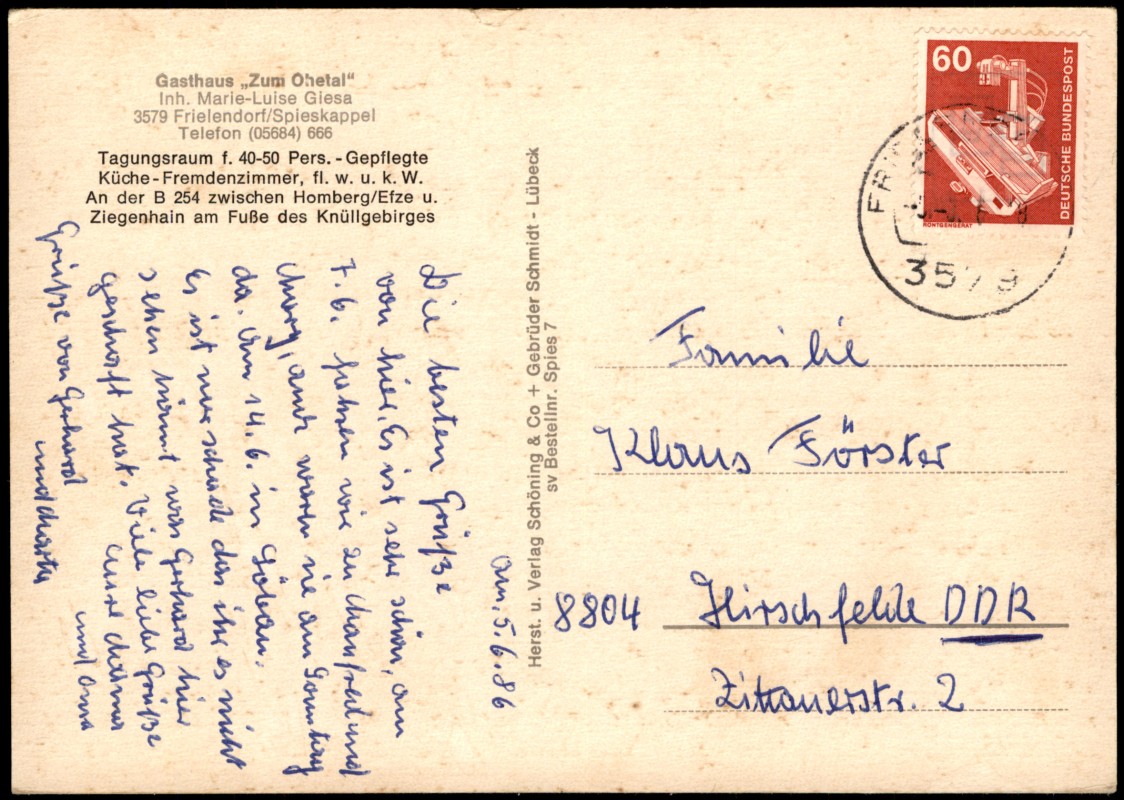 Gasthaus „Zum Ohetal“
Inh. Marie-Luise Giesa
3579 Frielendorf/Spieskappel
Telefon (05684) 666
Tagungsraum f. 40-50 Pers. - Gepflegte
Küche-Fremdenzimmer, fl. w. u. k. W.
An der B 254 zwischen Homberg/Efze u.
Ziegenhain am Fuße des Knüllgebirges
am. 5.6.86
Die besten Grüße
von hier. Es ist sehr schön, am
7.6. fahren wir zu Manfred und
Mary, auch waren sie am Sonntag
da. Am 14.6. in
Es ist nur schade das ihr es nicht
sehen könnt was Gerhard hier
geschafft hat. Viele liebe Grüße
eure Mama
und Oma
Grüße von Gerhard
und Martha
Herst. u. Verlag Schöning & Co + Gebrüder Schmidt - Lübeck
sv Bestellnr. Spies 7
60
DEUTSCHE BUNDESPOST
RÖNTGENGERÄT
3579
Familie
Klaus Förster
8804 Hirschfelde DDR
Zittauerstr. 2